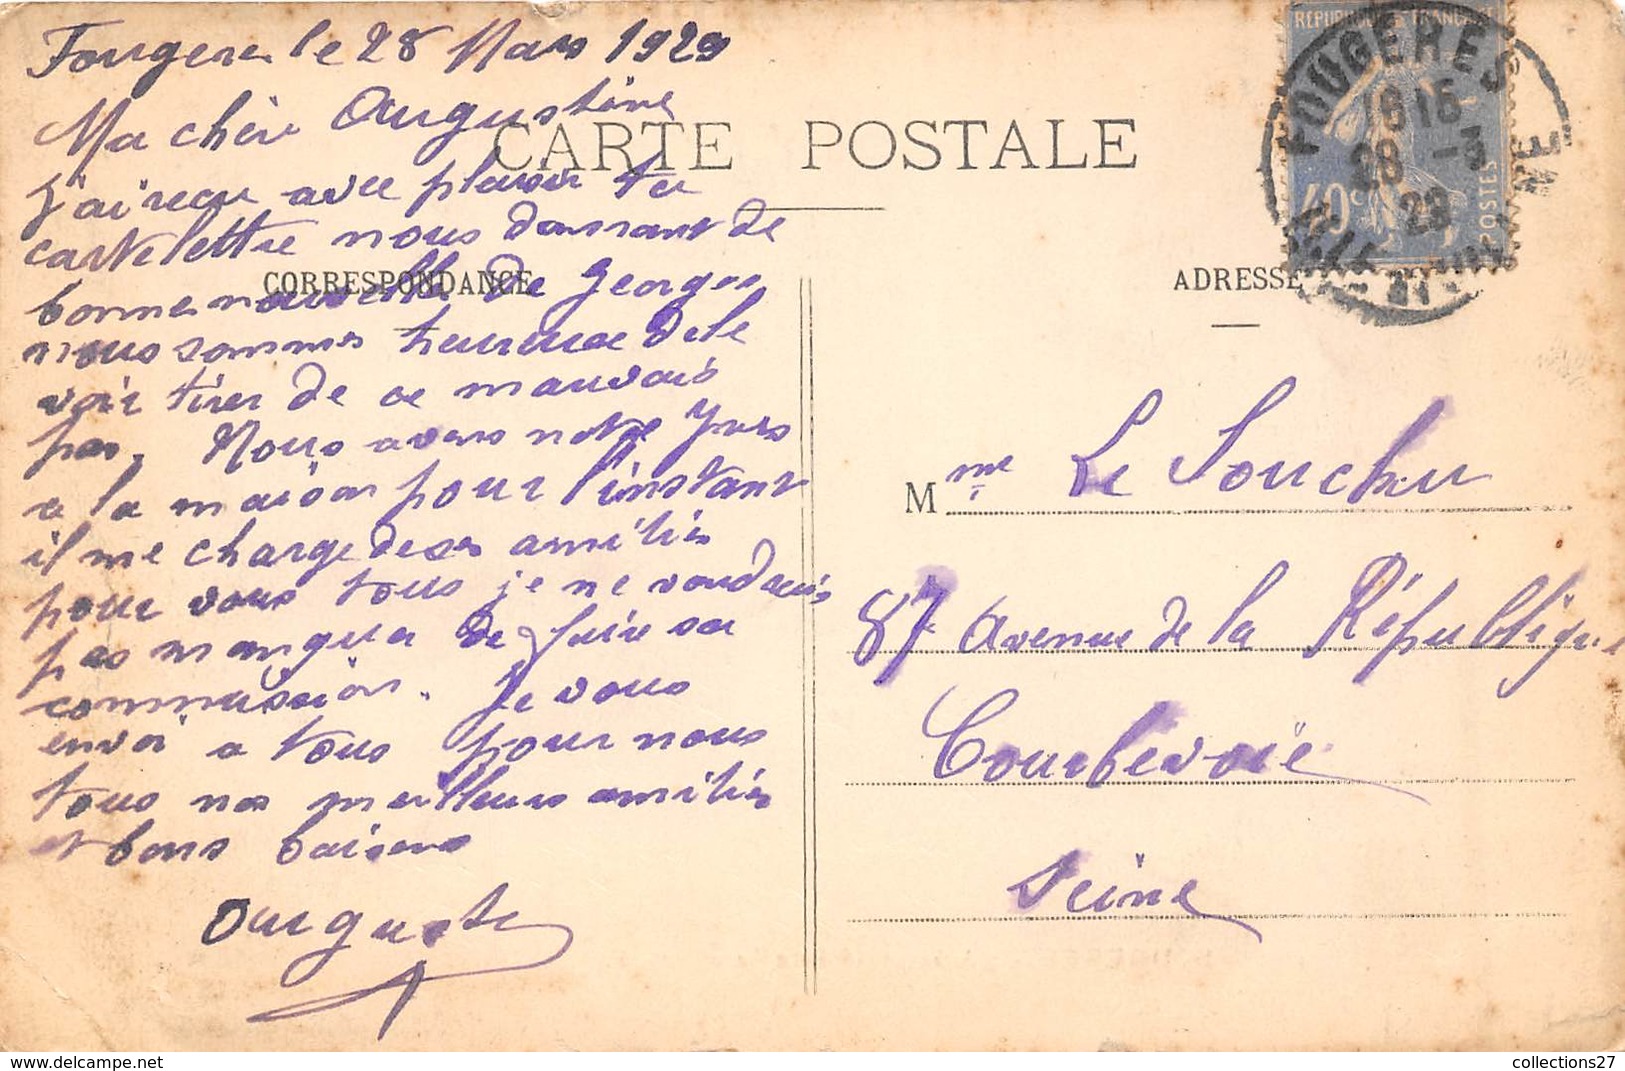 Fougeres le 28 Mars 1929
Ma chère Augustine
J'ai reçu avec plaisir ta
carte lettre nous donnant de
bonne nouvelle de Georges
nous sommes heureux de le
voir tirer de ce mauvais
pas. Nous avons notre Yves
a la maison pour l'instant
il me charge de ses amitiés
pour vous tous je ne voudrais
pas manquer de faire sa
commission. Je vous
envoi a tous pour nous
tous nos meilleurs amitiés
et bons baisers
Auguste
CARTE POSTALE
CORRESPONDANCE
ADRESSE
REPUBLIQUE FRANÇAISE
40c
POSTES
FOUGERES
16 15
28 -3
29
ILLE ET VILAINE
Mme Le Souchu
87 Avenue de la République
Courbevoie
Seine
collections27